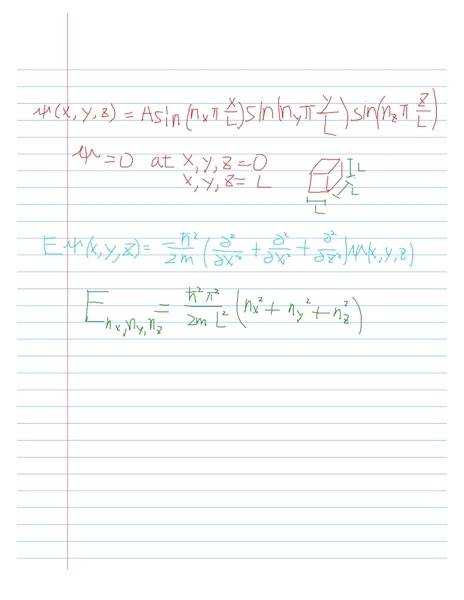 ψ(x, y, z) = A sin(n_x π x/L) sin(n_y π y/L) sin(n_z π z/L)
ψ = 0 at x, y, z = 0
x, y, z = L
L
L
L
E ψ(x, y, z) = -ħ²/2m (∂²/∂x² + ∂²/∂y² + ∂²/∂z²) ψ(x, y, z)
E_{n_x, n_y, n_z} = ħ² π²/2m L² (n_x² + n_y² + n_z²)